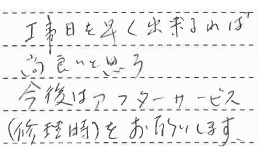 工事日を早く出来るれば
尚良いと思う
今後はアフターサービス
(修理時)をお願いします。